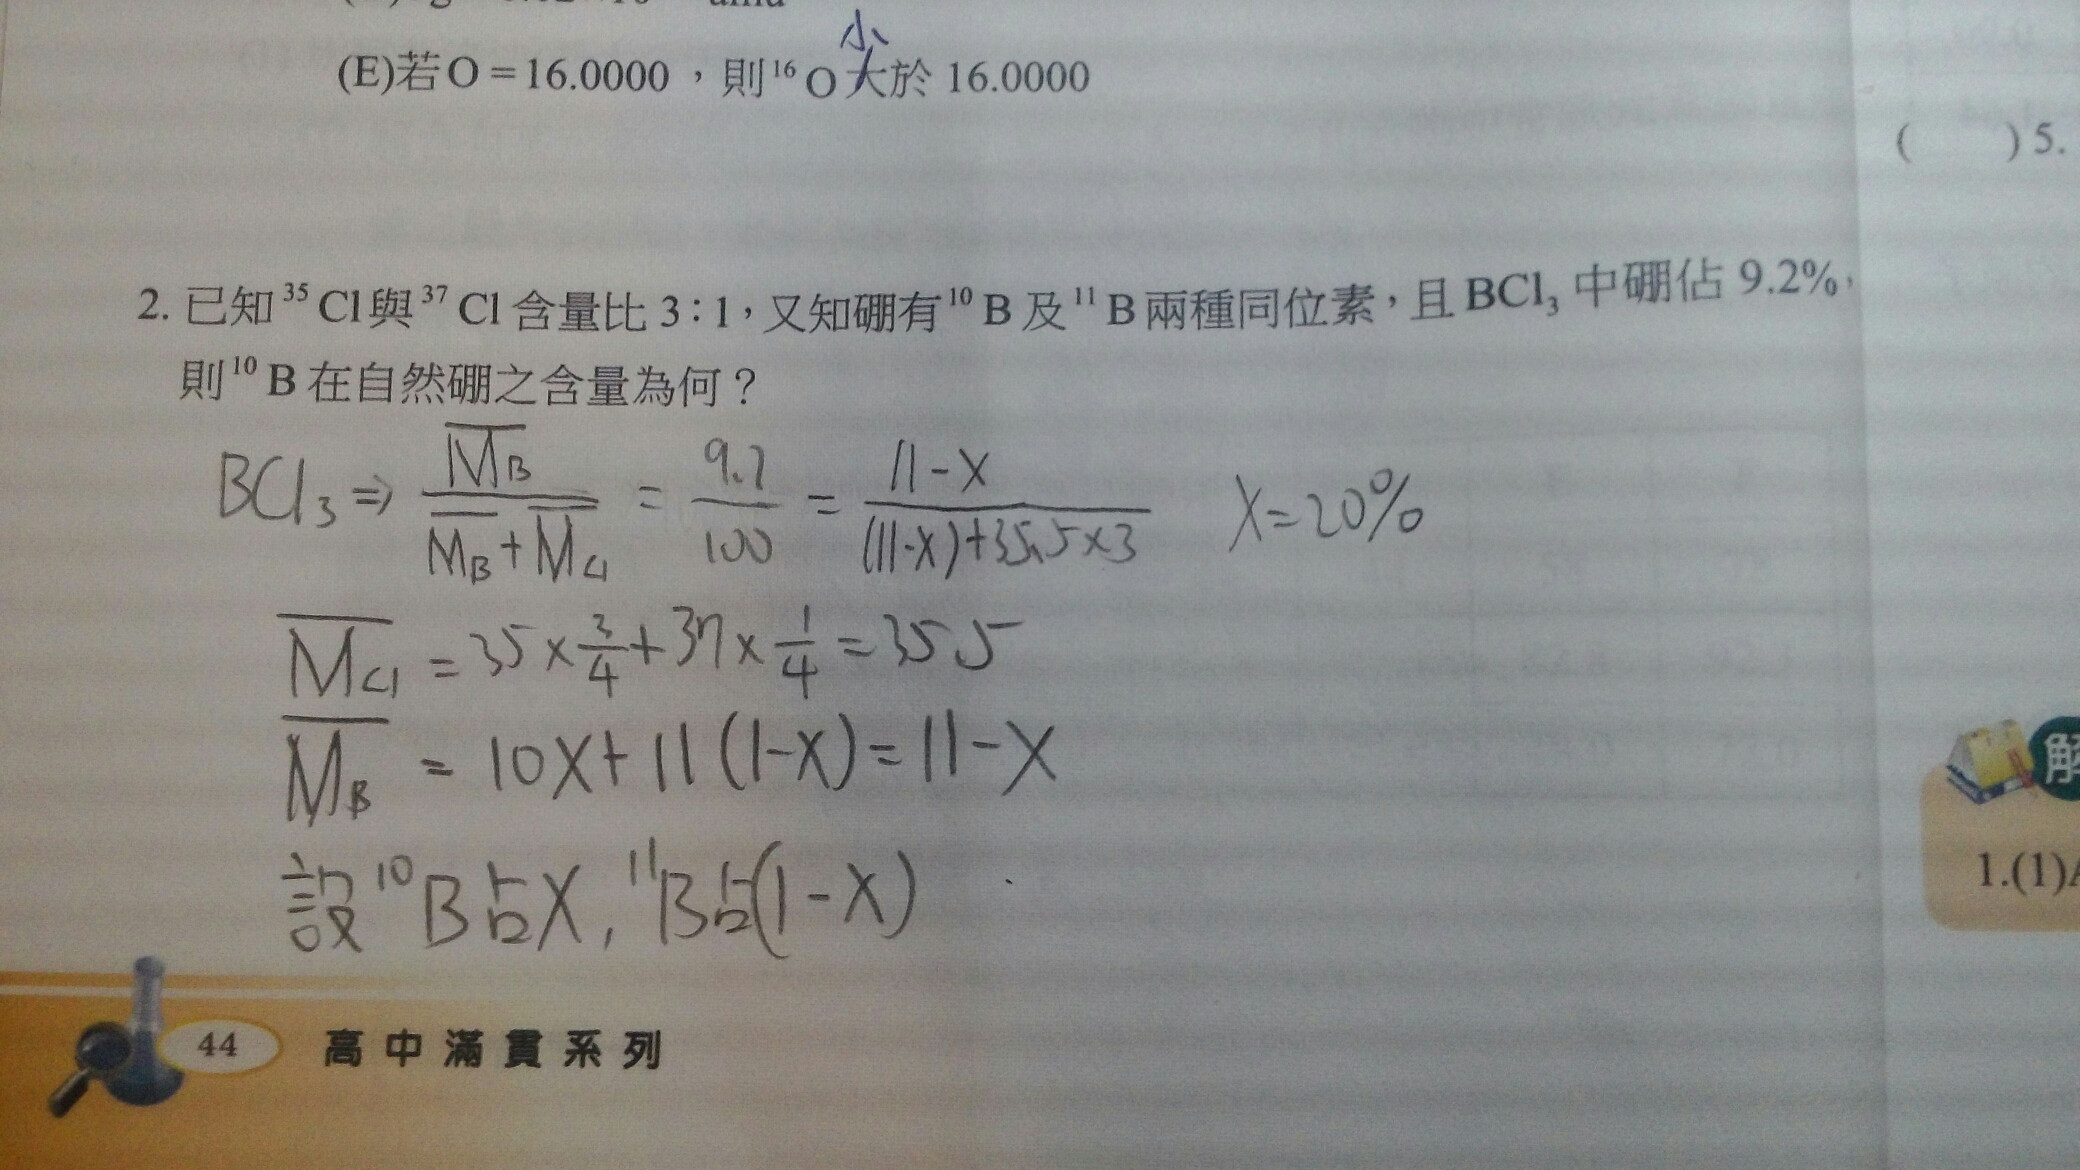 (E)若O=16.0000，則¹⁶O大於16.0000
小
( )5.
2. 已知³⁵Cl與³⁷Cl含量比3:1，又知硼有¹⁰B及¹¹B兩種同位素，且BCl₃中硼佔9.2%，
則¹⁰B在自然硼之含量為何？
BCl₃ ⇒ M̅B / (M̅B + M̅Cl) = 9.2/100 = (11-X) / ((11-X)+35.5×3) X=20%
M̅Cl = 35×3/4+37×1/4=35.5
M̅B = 10X+11(1-X)=11-X
設¹⁰B占X, ¹¹B占(1-X)
解
1.(1)
44 高中滿貫系列